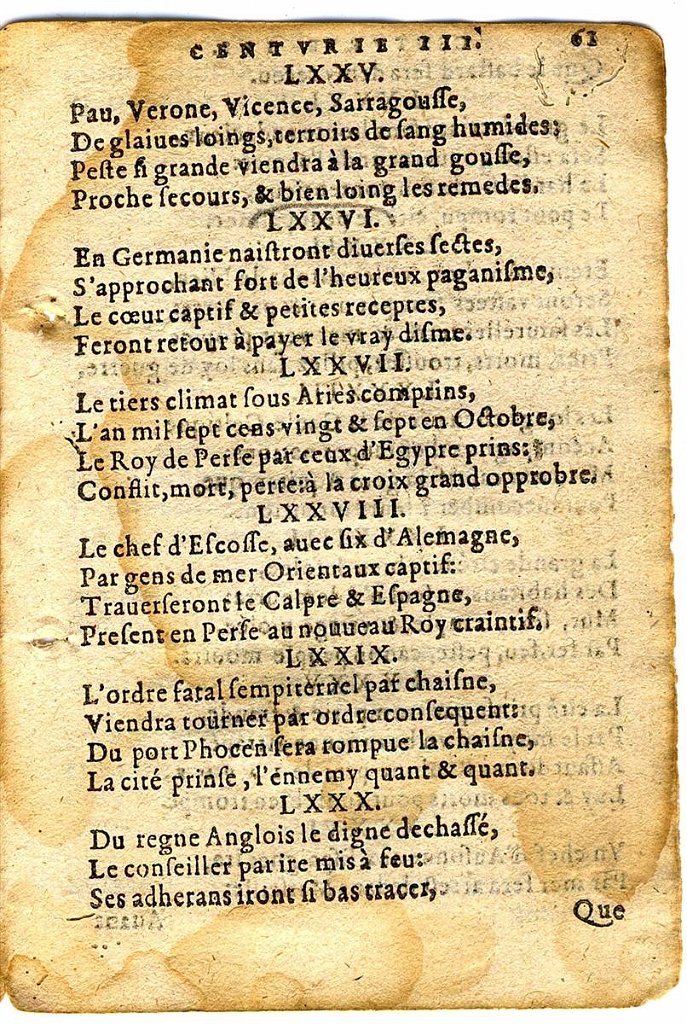 CENTVRIE III. 61
LXXV.
Pau, Verone, Vicence, Sarragouſſe,
De glaiues loings, terroirs de ſang humides:
Peſte ſi grande viendra à la grand gouſſe,
Proche ſecours, & bien loing les remedes.
LXXVI.
En Germanie naiſtront diuerſes ſectes,
S'approchant fort de l'heureux paganiſme,
Le cœur captif & petites receptes,
Feront retour à payer le vray diſme.
LXXVII.
Le tiers climat ſous Aries comprins,
L'an mil ſept cens vingt & ſept en Octobre,
Le Roy de Perſe par ceux d'Egypte prins:
Conflit, mort, perte: à la croix grand opprobre.
LXXVIII.
Le chef d'Eſcoſſe, auec ſix d'Alemagne,
Par gens de mer Orientaux captif:
Trauerſeront le Calpre & Eſpagne,
Preſent en Perſe au nouueau Roy craintif.
LXXIX.
L'ordre fatal ſempiternel par chaiſne,
Viendra tourner par ordre conſequent:
Du port Phocen ſera rompue la chaiſne,
La cité prinſe, l'énnemy quant & quant.
LXXX.
Du regne Anglois le digne dechaſſé,
Le conſeiller par ire mis à feu:
Ses adherans iront ſi bas tracer,
Que